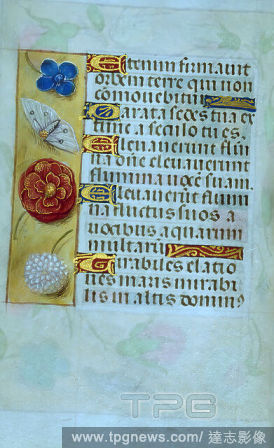 Etenim firmavit
orbem terre qui non
comovebitur
Parata sedes tua ex
tunc a seculo tu es.
Elevaverunt flumi
na dñe elevaverunt
flumina vocē suam.
Elevaverūt flumi
na fluctus suos a
vocibus aquarum
multarū
Mirabiles elatio
nes maris mirabi
lis in altis dominꝰ
TPG
www.tpgnews.com/達志影像